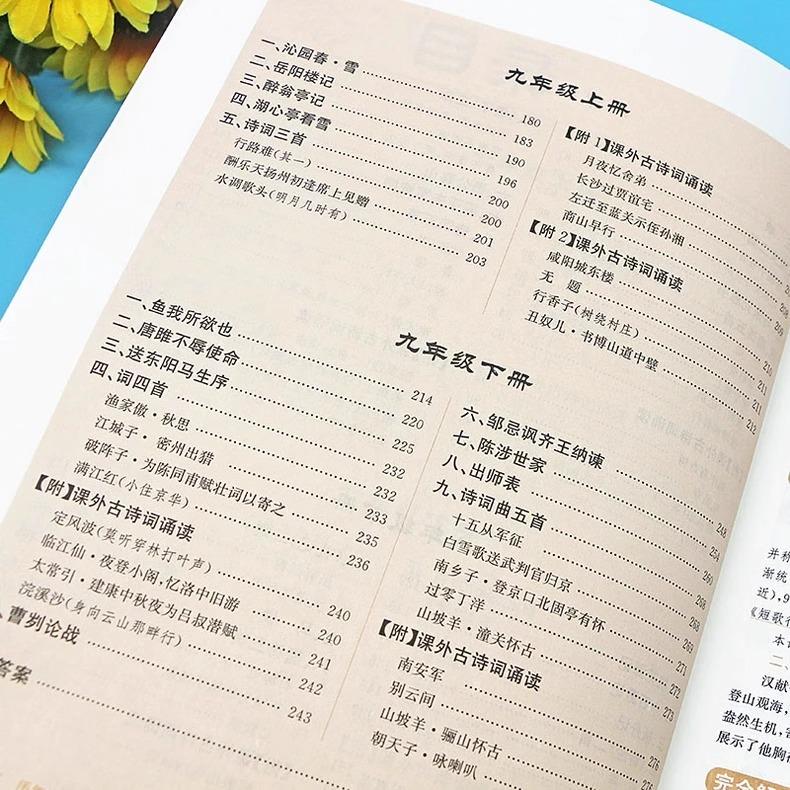 九年级上册
一、沁园春·雪 180
二、岳阳楼记 183
三、醉翁亭记 190
四、湖心亭看雪 196
五、诗词三首 200
行路难(其一) 200
酬乐天扬州初逢席上见赠 201
水调歌头(明月几时有) 203
【附1】课外古诗词诵读
月夜忆舍弟
长沙过贾谊宅
左迁至蓝关示侄孙湘
商山早行
【附2】课外古诗词诵读
咸阳城东楼
无 题
行香子(树绕村庄) 211
丑奴儿·书博山道中壁 212
九年级下册
一、鱼我所欲也 214
二、唐雎不辱使命 220
三、送东阳马生序 225
四、词四首 232
渔家傲·秋思 232
江城子·密州出猎 233
破阵子·为陈同甫赋壮词以寄之 235
满江红(小住京华) 236
【附】课外古诗词诵读 240
定风波(莫听穿林打叶声) 240
临江仙·夜登小阁,忆洛中旧游 241
太常引·建康中秋夜为吕叔潜赋 242
浣溪沙(身向云山那畔行) 243
、曹刿论战
答案
六、邹忌讽齐王纳谏 248
七、陈涉世家
八、出师表 260
九、诗词曲五首 268
十五从军征
白雪歌送武判官归京
南乡子·登京口北固亭有怀 271
过零丁洋 272
山坡羊·潼关怀古 273
【附】课外古诗词诵读 276
南安军 276
别云间
山坡羊·骊山怀古
朝天子·咏喇叭
渐统
近),9
《短歌行
本诗
二、
汉献
登山观海,
盎然生机,
展示了他胸
完全解